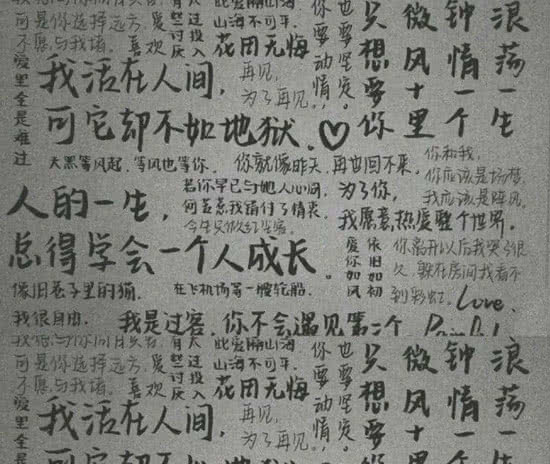 可是你选择远方,
不愿与我墙。喜欢
爱里全是难过
此爱隔山海
山海不可平
花团无悔
我活在人间,
再见,
为了再见!
你要动情
也要坚定
只想要
微风十里
钟情一个
浪荡一生
可它却不如地狱。♡你
天黑等风起,等风也等你。
你就像昨天,再也回不来,
你和我,
你应该是杨梦,
我应该是阵风,
人的一生,
若你早已与她人心同,
何苦惹我错付了情衷
为了你,
我愿意热爱整个世界。
总得学会一个人成长。
爱你如风
依旧如初
你离开以后我哭了很
久,躲在房间我看不
到彩虹。Love.
像旧巷子里的猫,
我很自由,
在飞机场等一艘轮船,
我是过客,你不会遇见第二个
可是你选择远方,
不愿与我墙。喜欢
爱里全是
山海不可平
花团无悔
我活在人间,
再见,
为了再见!
你要动情
也要坚定
只想要
微风十
钟情一
浪荡一